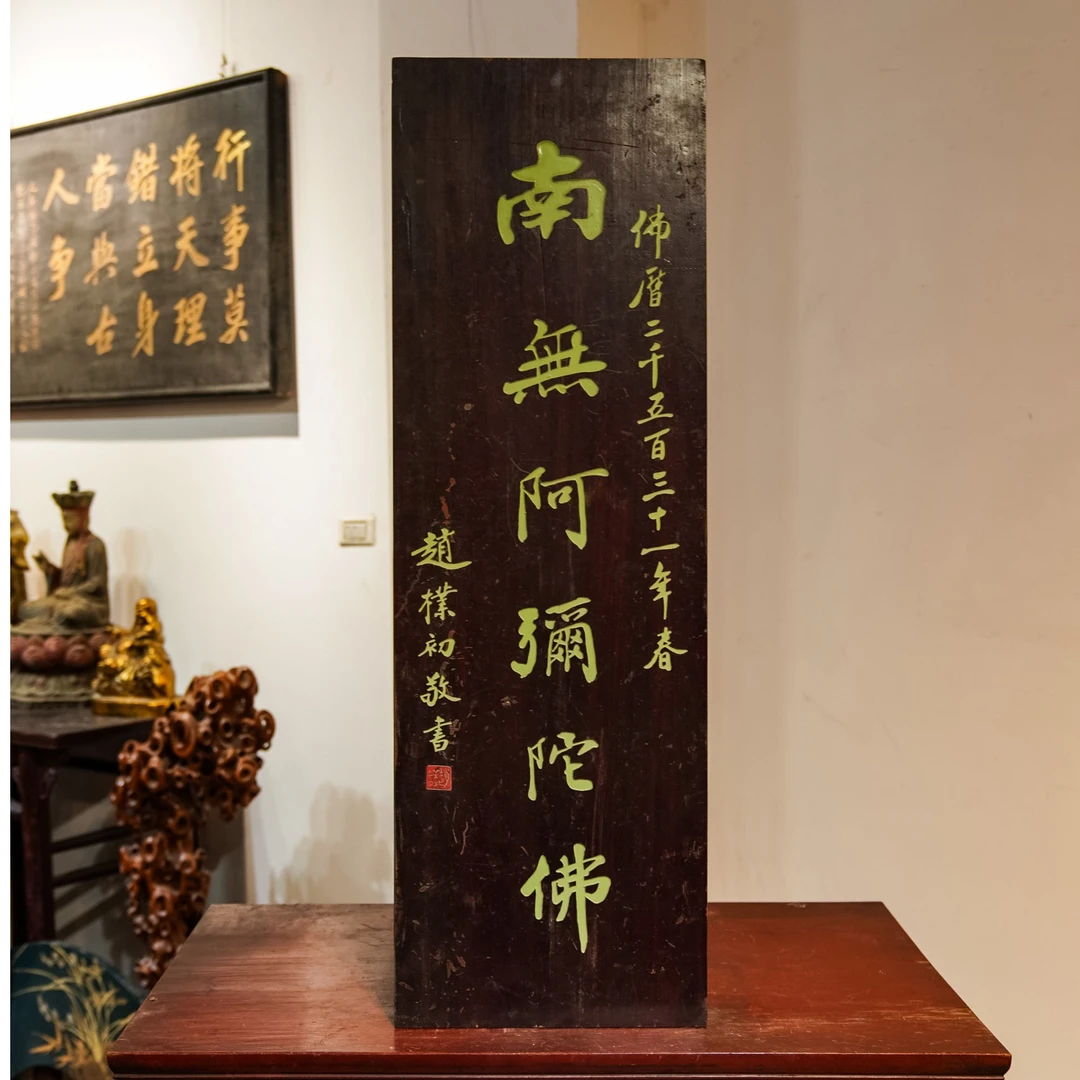 佛曆二千五百三十一年春
南無阿彌陀佛
趙樸初敬書
行事莫
將天理
錯立身
當與古
人爭